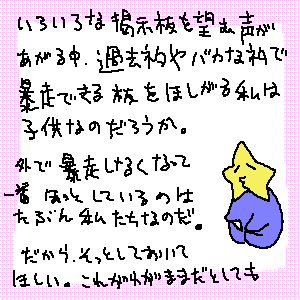 いろいろな掲示板を望む声が
あがる中、過去的やバカな的で
暴走できる板をほしがる私は
子供なのだろうか。
外で暴走しなくなって
一番ほっとしているのは
たぶん私たちなのだ。
だから、そっとしておいて
ほしい。これがわがままだとしても